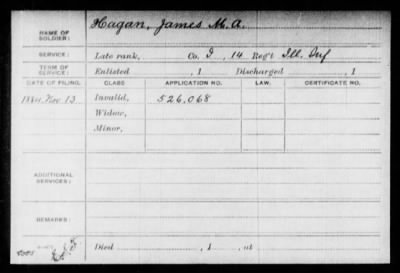 NAME OF SOLDIER: Hagan, James M. A.
SERVICE: Late rank, Co. I, 14 Reg't Ill. Inf
TERM OF SERVICE: Enlisted , 1 Discharged , 1
DATE OF FILING. CLASS APPLICATION NO. LAW. CERTIFICATE NO.
1884, Nov. 13 Invalid, 526,068
Widow,
Minor,
ADDITIONAL SERVICES:
REMARKS:
Died , 1 , at